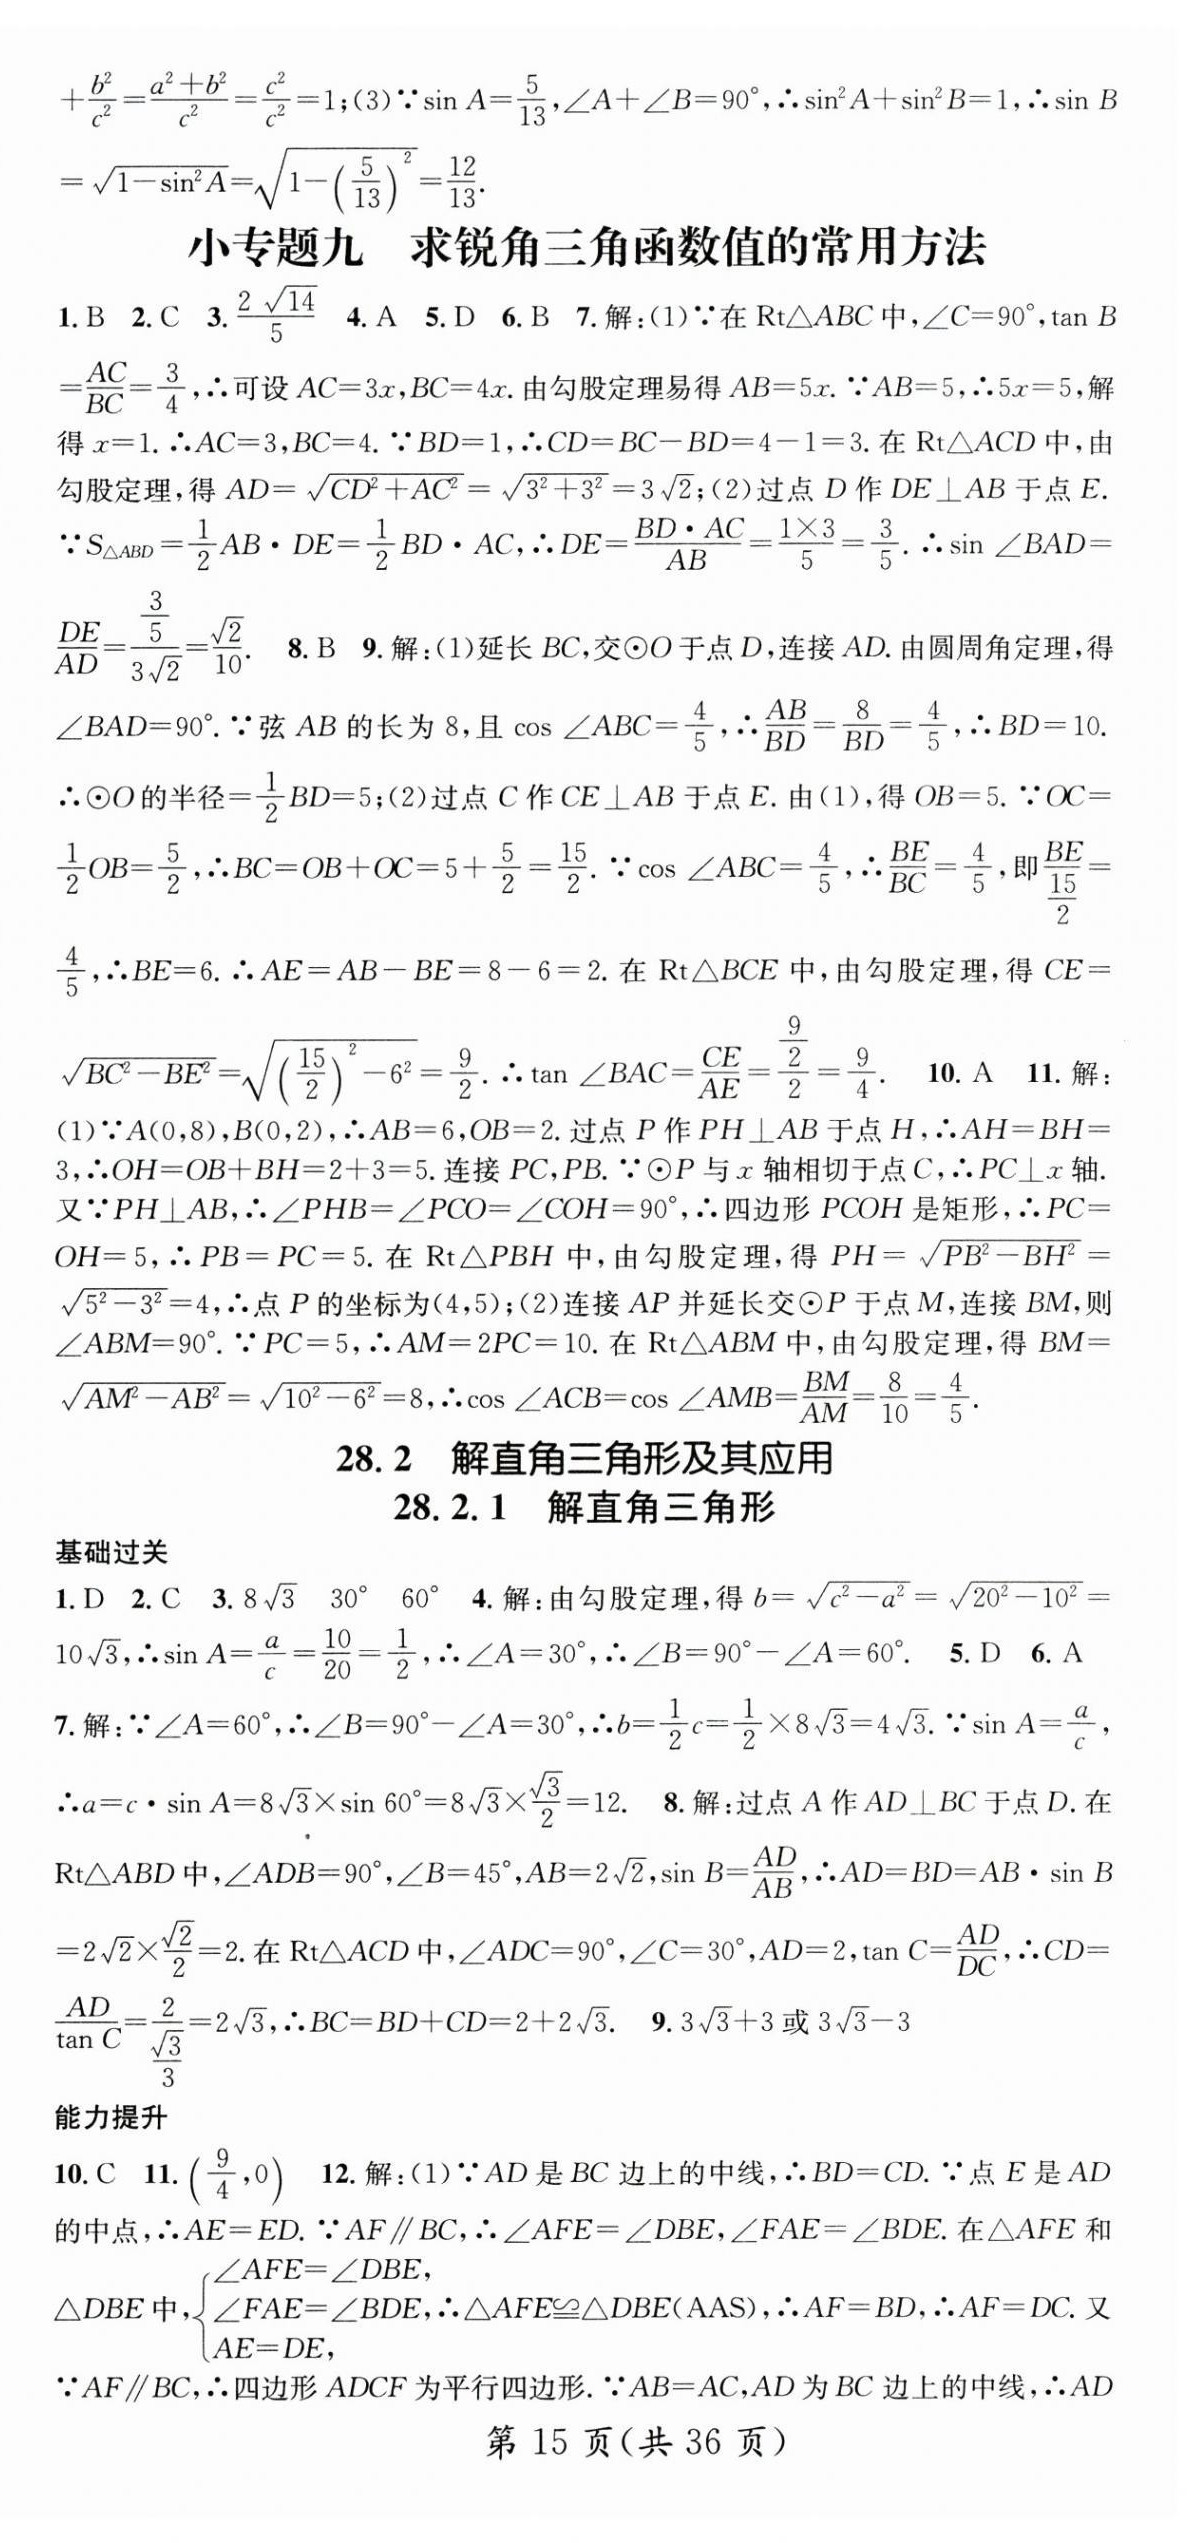 +b²/c²=(a²+b²)/c²=c²/c²=1;(3)∵sin A=5/13,∠A+∠B=90°,∴sin²A+sin²B=1,∴sin B
=√(1-sin²A)=√(1-(5/13)²)=12/13.
小专题九 求锐角三角函数值的常用方法
1.B 2.C 3.2√14/5 4.A 5.D 6.B 7.解:(1)∵在Rt△ABC中,∠C=90°,tan B
=AC/BC=3/4,∴可设AC=3x,BC=4x.由勾股定理易得AB=5x.∵AB=5,∴5x=5,解
得x=1.∴AC=3,BC=4.∵BD=1,∴CD=BC-BD=4-1=3.在Rt△ACD中,由
勾股定理,得AD=√(CD²+AC²)=√(3²+3²)=3√2;(2)过点D作DE⊥AB于点E.
∵S△ABD=1/2AB·DE=1/2BD·AC,∴DE=BD·AC/AB=1×3/5=3/5.∴sin ∠BAD=
DE/AD=(3/5)/(3√2)=√2/10. 8.B 9.解:(1)延长BC,交⊙O于点D,连接AD.由圆周角定理,得
∠BAD=90°.∵弦AB的长为8,且cos ∠ABC=4/5,∴AB/BD=8/BD=4/5,∴BD=10.
∴⊙O的半径=1/2BD=5;(2)过点C作CE⊥AB于点E.由(1),得OB=5.∵OC=
1/2OB=5/2,∴BC=OB+OC=5+5/2=15/2.∵cos ∠ABC=4/5,∴BE/BC=4/5,即BE/(15/2)=
4/5,∴BE=6.∴AE=AB-BE=8-6=2.在Rt△BCE中,由勾股定理,得CE=
√(BC²-BE²)=√((15/2)²-6²)=9/2.∴tan ∠BAC=CE/AE=(9/2)/2=9/4. 10.A 11.解:
(1)∵A(0,8),B(0,2),∴AB=6,OB=2.过点P作PH⊥AB于点H,∴AH=BH=
3,∴OH=OB+BH=2+3=5.连接PC,PB.∵⊙P与x轴相切于点C,∴PC⊥x轴.
又∵PH⊥AB,∴∠PHB=∠PCO=∠COH=90°,∴四边形PCOH是矩形,∴PC=
OH=5,∴PB=PC=5.在Rt△PBH中,由勾股定理,得PH=√(PB²-BH²)=
√(5²-3²)=4,∴点P的坐标为(4,5);(2)连接AP并延长交⊙P于点M,连接BM,则
∠ABM=90°.∵PC=5,∴AM=2PC=10.在Rt△ABM中,由勾股定理,得BM=
√(AM²-AB²)=√(10²-6²)=8,∴cos ∠ACB=cos ∠AMB=BM/AM=8/10=4/5.
28.2 解直角三角形及其应用
28.2.1 解直角三角形
基础过关
1.D 2.C 3.8√3 30° 60° 4.解:由勾股定理,得b=√(c²-a²)=√(20²-10²)=
10√3,∴sin A=a/c=10/20=1/2,∴∠A=30°,∴∠B=90°-∠A=60°. 5.D 6.A
7.解:∵∠A=60°,∴∠B=90°-∠A=30°,∴b=1/2c=1/2×8√3=4√3.∵sin A=a/c,
∴a=c·sin A=8√3×sin 60°=8√3×√3/2=12. 8.解:过点A作AD⊥BC于点D.在
Rt△ABD中,∠ADB=90°,∠B=45°,AB=2√2,sin B=AD/AB,∴AD=BD=AB·sin B
=2√2×√2/2=2.在Rt△ACD中,∠ADC=90°,∠C=30°,AD=2,tan C=AD/DC,∴CD=
AD/tan C=2/(√3/3)=2√3,∴BC=BD+CD=2+2√3. 9.3√3+3或3√3-3
能力提升
10.C 11.(9/4,0) 12.解:(1)∵AD是BC边上的中线,∴BD=CD.∵点E是AD
的中点,∴AE=ED.∵AF∥BC,∴∠AFE=∠DBE,∠FAE=∠BDE.在△AFE和
∠AFE=∠DBE,
△DBE中,{∠FAE=∠BDE,∴△AFE≌△DBE(AAS),∴AF=BD,∴AF=DC.又
AE=DE,
∵AF∥BC,∴四边形ADCF为平行四边形.∵AB=AC,AD为BC边上的中线,∴AD
第15页(共36页)